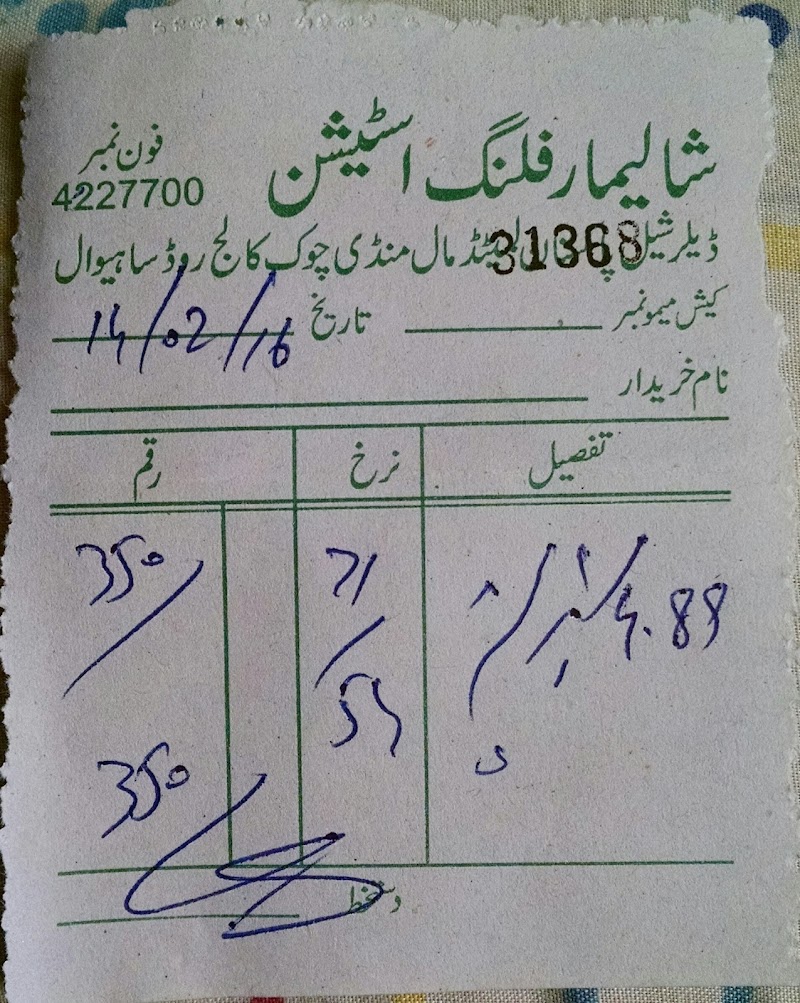 شالیمار فلنگ اسٹیشن
فون نمبر
4227700
ڈیلر شیل پاکستان لمیٹڈ مال منڈی چوک کالج روڈ ساہیوال
31368
کیش میمو نمبر تاریخ 14/02/16
نام خریدار
تفصیل نرخ رقم
4.89 71 350/
/54
350
دستخط